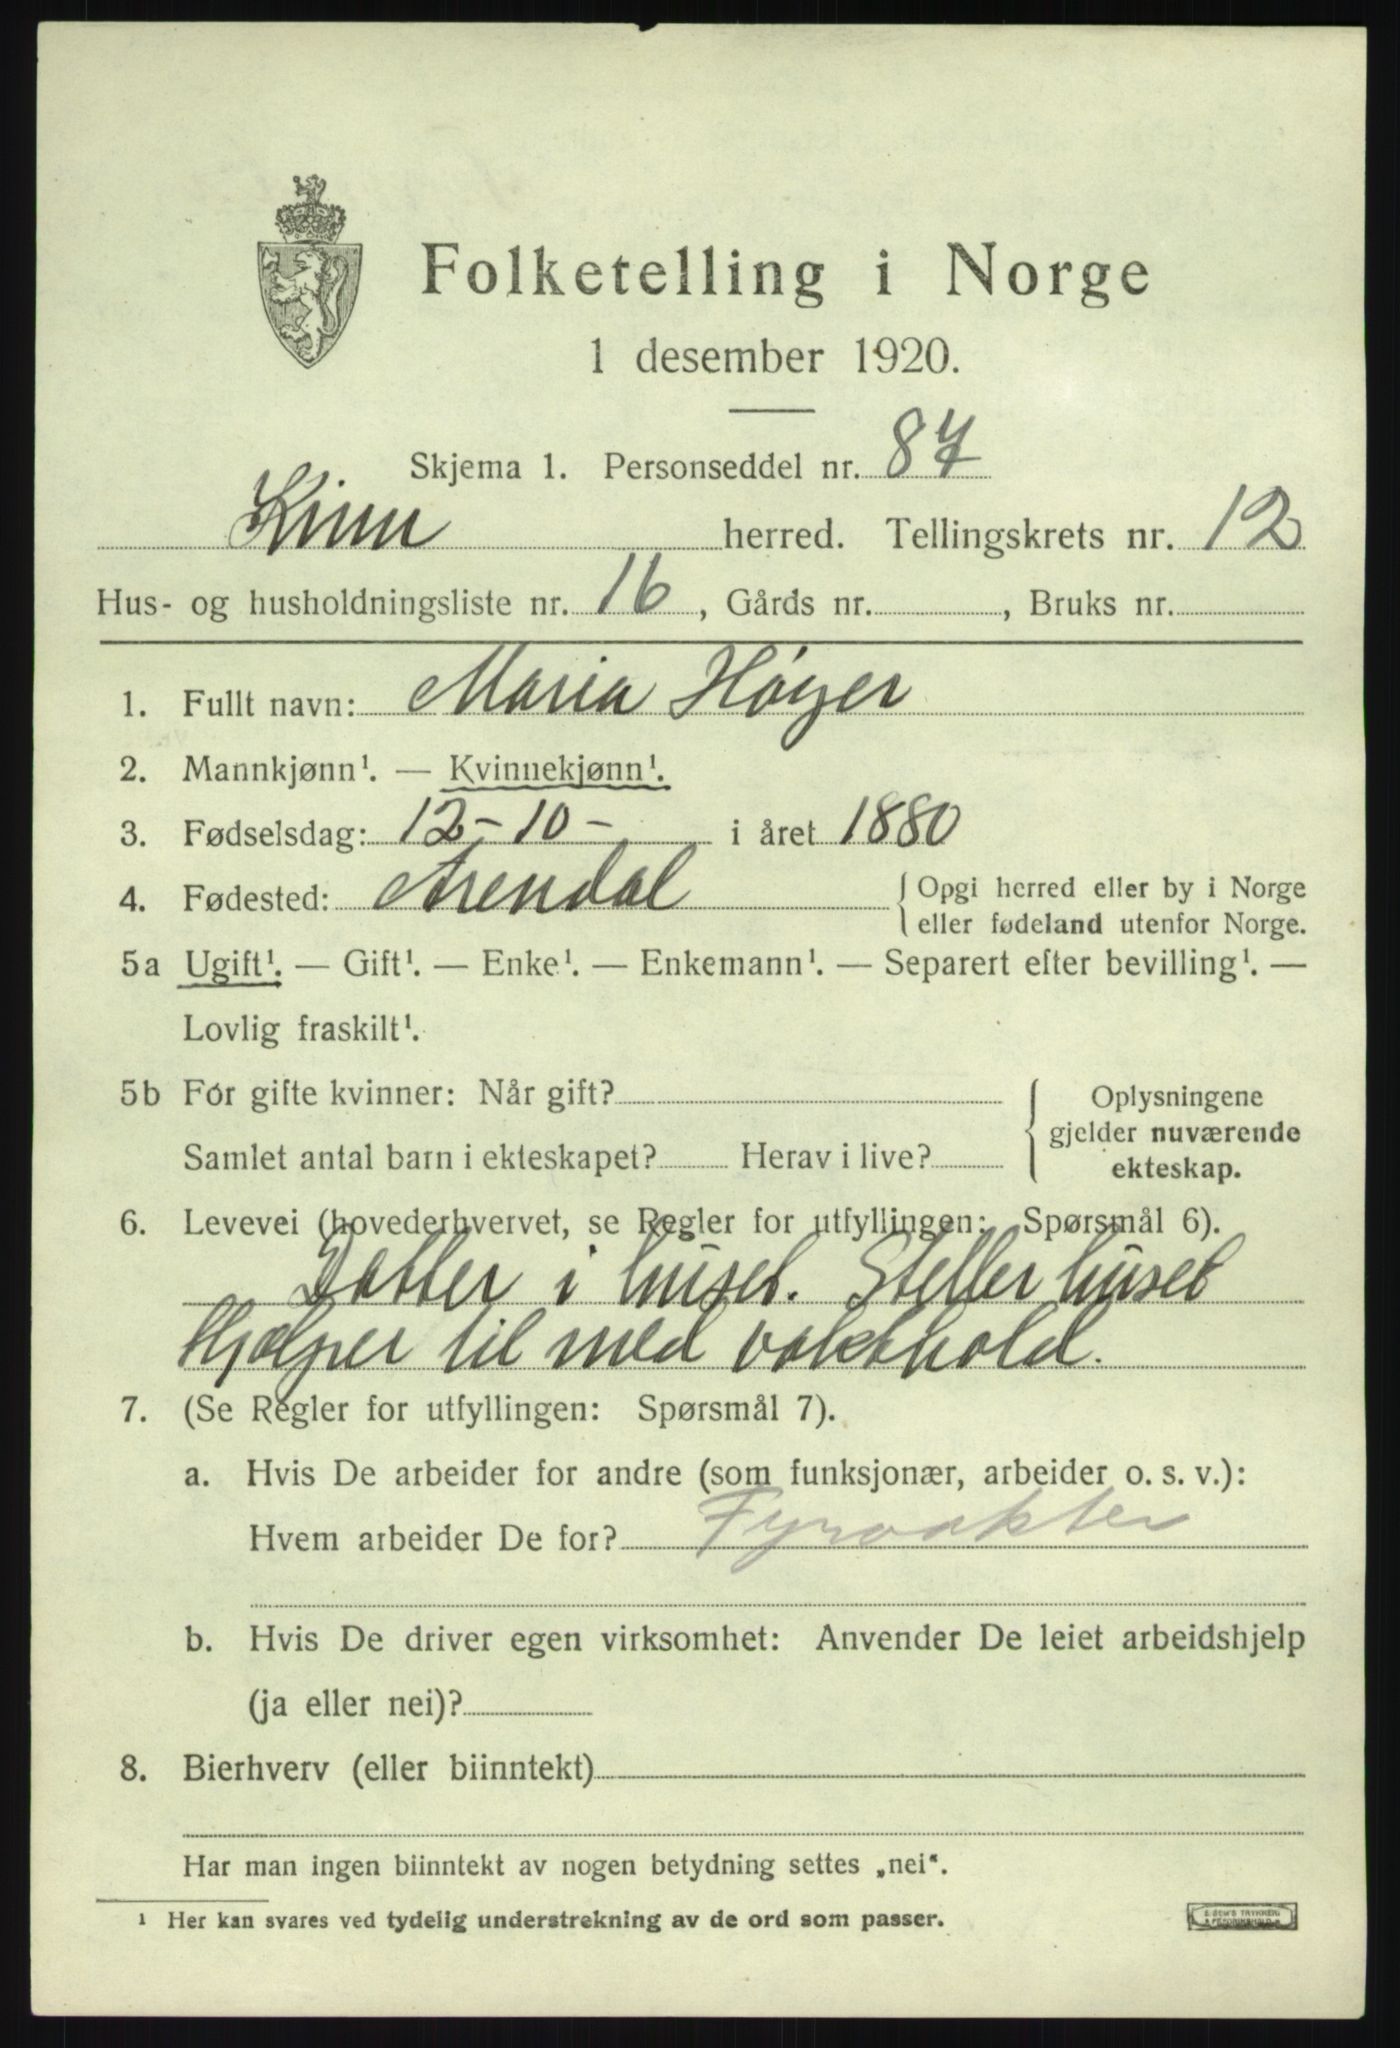 Folketelling i Norge
1 desember 1920.
Skjema 1. Personseddel nr. 87
Kinn herred. Tellingskrets nr. 12
Hus- og husholdningsliste nr. 16, Gårds nr. , Bruks nr.
1. Fullt navn: Maria Høyer
2. Mannkjønn¹. — Kvinnekjønn¹.
3. Fødselsdag: 12-10- i året 1880
4. Fødested: Arendal { Opgi herred eller by i Norge
eller fødeland utenfor Norge.
5a Ugift¹. — Gift¹. — Enke¹. — Enkemann¹. — Separert efter bevilling¹. —
Lovlig fraskilt¹.
5b For gifte kvinner: Når gift?
Samlet antal barn i ekteskapet? Herav i live?
{ Oplysningene
gjelder nuværende
ekteskap.
6. Levevei (hovederhvervet, se Regler for utfyllingen: Spørsmål 6).
Datter i huset. Steller huset
Hjælper til med vakthold.
7. (Se Regler for utfyllingen: Spørsmål 7).
a. Hvis De arbeider for andre (som funksjonær, arbeider o. s. v.):
Hvem arbeider De for? Fyrvakter
b. Hvis De driver egen virksomhet: Anvender De leiet arbeidshjelp
(ja eller nei)?
8. Bierhverv (eller biinntekt)
Har man ingen biinntekt av nogen betydning settes „nei“.
¹ Her kan svares ved tydelig understrekning av de ord som passer.